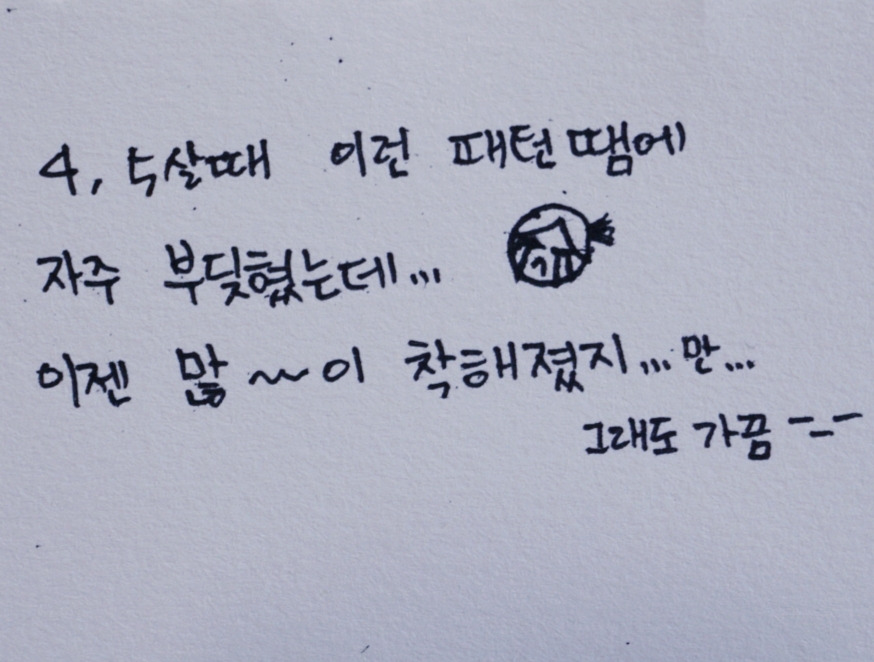 4, 5살때 이런 패턴 땜에
자주 부딪혔는데...
이젠 많~~이 착해졌지...만...
그래도 가끔 -_-